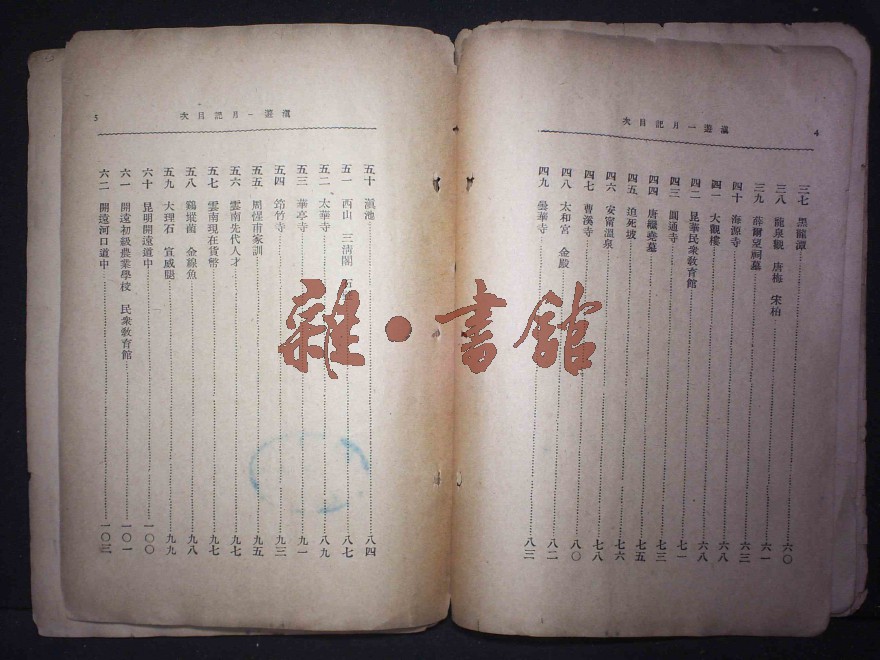 滇遊一月記目次
4
三七 黑龍潭 六〇
三八 龍泉觀 唐梅 宋柏 六一
三九 薛爾望祠墓 六三
四十 海源寺 六八
四一 大觀樓 六八
四二 昆華民衆教育館 七一
四三 圓通寺 七三
四四 唐繼堯墓 七五
四五 迫死坡 七六
四六 安甯溫泉 七八
四七 曹溪寺 八〇
四八 太和宮 金殿 八二
四九 曇華寺 八三
滇遊一月記目次
5
五十 滇池 八四
五一 西山 三淸閣 八七
五二 太華寺 八九
五三 華亭寺 九一
五四 筇竹寺 九三
五五 周惺甫家訓 九五
五六 雲南先代人才 九七
五七 雲南現在貨幣 九七
五八 鷄㙡菌 金線魚 九八
五九 大理石 宣威腿 九九
六十 昆明開遠道中 一〇〇
六一 開遠初級農業學校 民衆教育館 一〇一
六二 開遠河口道中 一〇三
雜·書館